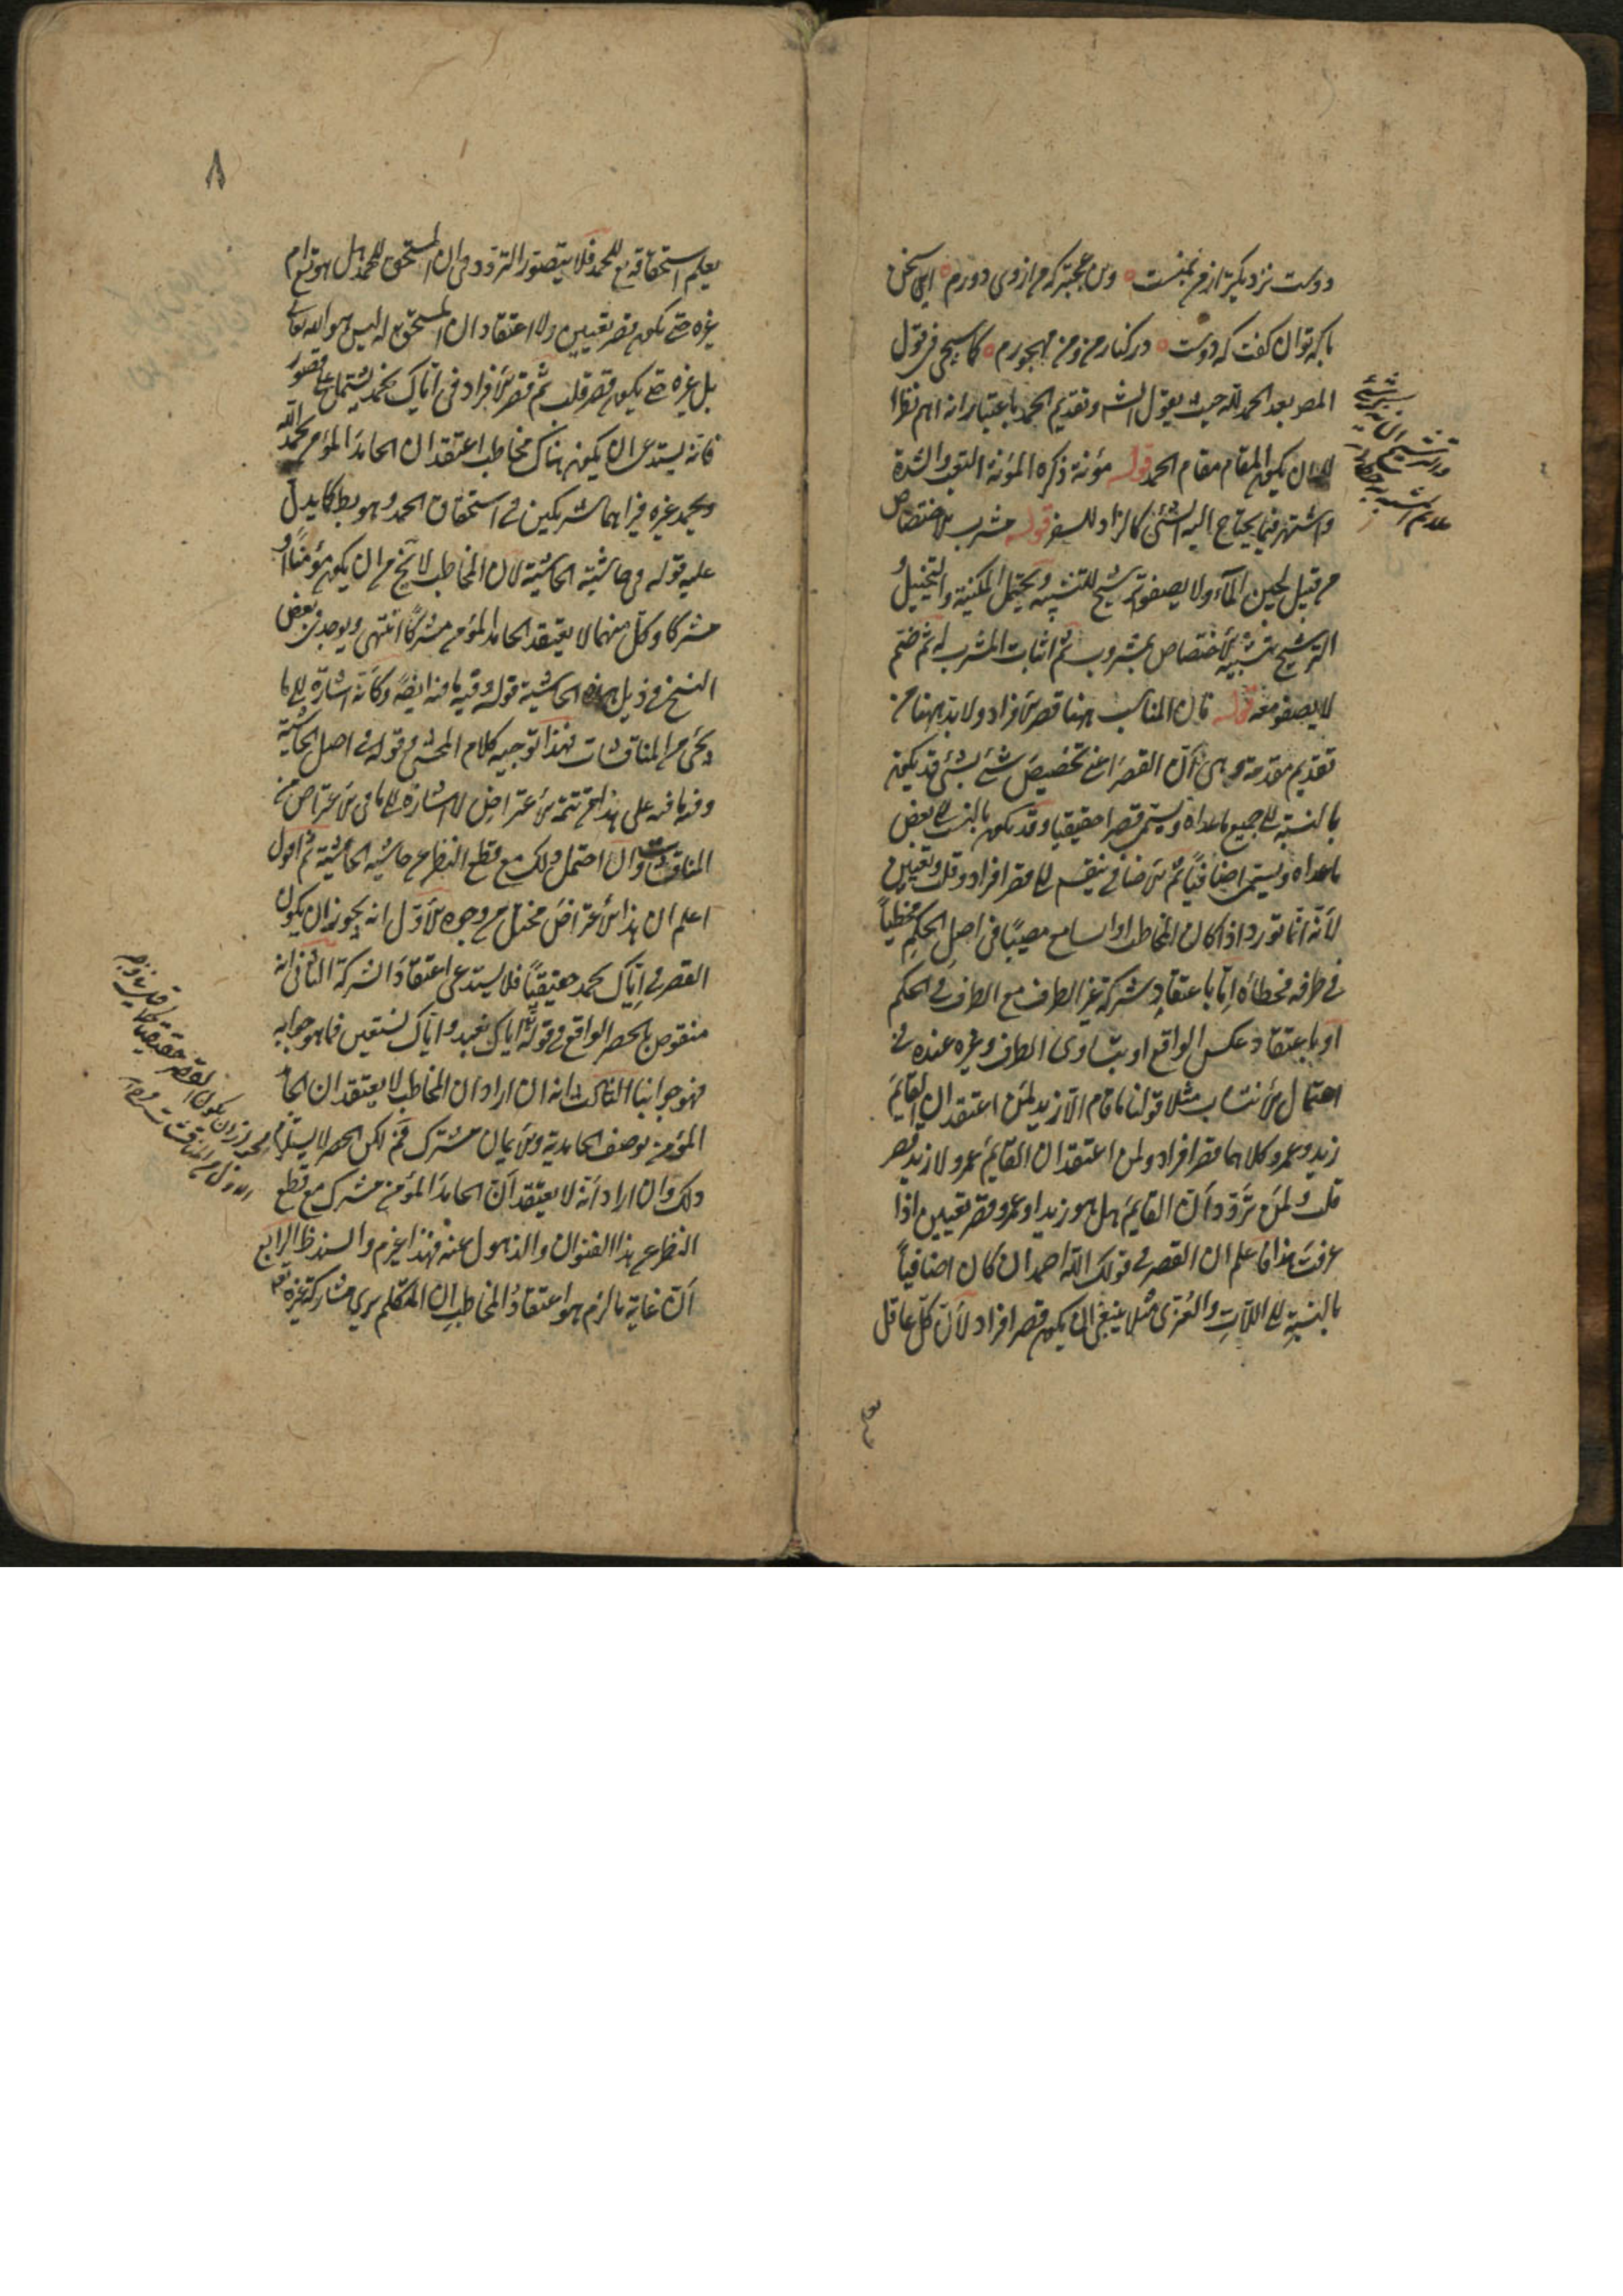 دوست نزدیکتر از من بمنست وین عجبتر که من از وی دورم این سخن
با که توان کفت که دوست در کنار من و من مهجورم کما سیجئ فی قول
المص بعد الحمد لله حیث یقول الش وتقدیم الحمد باعتبار انه اهم نظرا
الی ان یکون المقام مقام الحمد قوله مؤنة ذکره المؤنة التعب والشدة
واشتهر فیما یحتاج الیه الشئ کالزاد للسفر قوله مشرب الاختصاص
من قبیل لجین المآء ولا یصفو ترشیح للتشبیه ویحتمل المکنیة والتخییل و
الترشیح بتشبیه الاختصاص بمشروب ثم اثبات المشرب له ثم ضم
لا یصفو معه قوله فان المناسب ههنا قصر الافراد ولابد ههنا من
تقدیم مقدمة وهی ان القصر اعنی تخصیص شئ بشئ قد یکون
بالنسبة الی جمیع ما عداه ویسمی قصرا حقیقیا وقد یکون بالنسبة الی بعض
ما عداه ویسمی اضافیا ثم الاضافی ینقسم الی قصر افراد وقلب وتعیین
لانه انما تورد اذا کان المخاطب او السامع مصیبا فی اصل الحکم مخطیا
فی طرفه فخطاؤه اما باعتقاد شرکة غیر الطرف مع الطرف فی الحکم
او باعتقاد عکس الواقع او بتساوی الطرف وغیره عنده فی
احتمال الانتساب مثلا قولنا ما قام الا زید لمن اعتقد ان القایم
زید وعمرو کلاهما قصر افراد ولمن اعتقد ان القایم عمرو لا زید قصر
قلب ولمن تردد ان القایم هل هو زید او عمرو قصر تعیین اذا
عرفت هذا فاعلم ان القصر فی قولک الله احمد ان کان اضافیا
بالنسبة الی اللات والعزی مثلا ینبغی ان یکون قصر افراد لان کل عاقل
یعلم
والترشیح
٨
یعلم استحقاقه تع للحمد فلا یتصور التردد فی ان المستحق للحمد هل هو تع ام
غیره حتی یکون قصر تعیین ولا اعتقاد ان المستحق له لیس هو الله تعالی
بل غیره حتی یکون قصر قلب ثم قصر الافراد فی ایاک نحمد یشتمل علی قصور
فانه یستدعی ان یکون هناک مخاطب اعتقد ان الحامد المؤمن یحمد الله
ویحمد غیره فیراهما شریکین فی استحقاق الحمد وهو بط کما یدل
علیه قوله فی حاشیة الحاشیة لان المخاطب لا یخ من ان یکون مؤمنا او
مشرکا وکل منهما لا یعتقد الحامد المؤمن مشرکا انتهی ویوجد فی بعض
النسخ فی ذیل هذه الحاشیة قوله وفیه ما فیه ایضا وکانه اشارة الی ما
یجئ من المناقشات فهذا توجیه کلام المحشی وقوله فی اصل الحاشیة
وفیه ما فیه علی هذا من تتمة الاعتراض لا اشارة الی ما فی الاعتراض من
المناقشات وان احتمل ذلک مع قطع النظر عن حاشیة الحاشیة ثم اقول
اعلم ان هذا الاعتراض مختل من وجوه الاول انه یجوز ان یکون
القصر فی ایاک نحمد حقیقیا فلا یستدعی اعتقاد الشرکة الثانی انه
منقوض بالحصر الواقع فی قوله تع ایاک نعبد وایاک نستعین فما هو جوابه
فهو جوابنا الثالث انه ان اراد ان المخاطب لا یعتقد ان الحامد
المؤمن بوصف الحامدیة والایمان مشرک فم لکن الحصر لا یستلزم
ذلک وان اراد انه لا یعتقد ان الحامد المؤمن مشرک مع قطع
النظر عن هذا العنوان والذهول عنه فهذا غیر م والسند ظ الرابع
ان غایة ما لزم هو اعتقاد المخاطب ان المتکلم یری مشارکة غیره تع